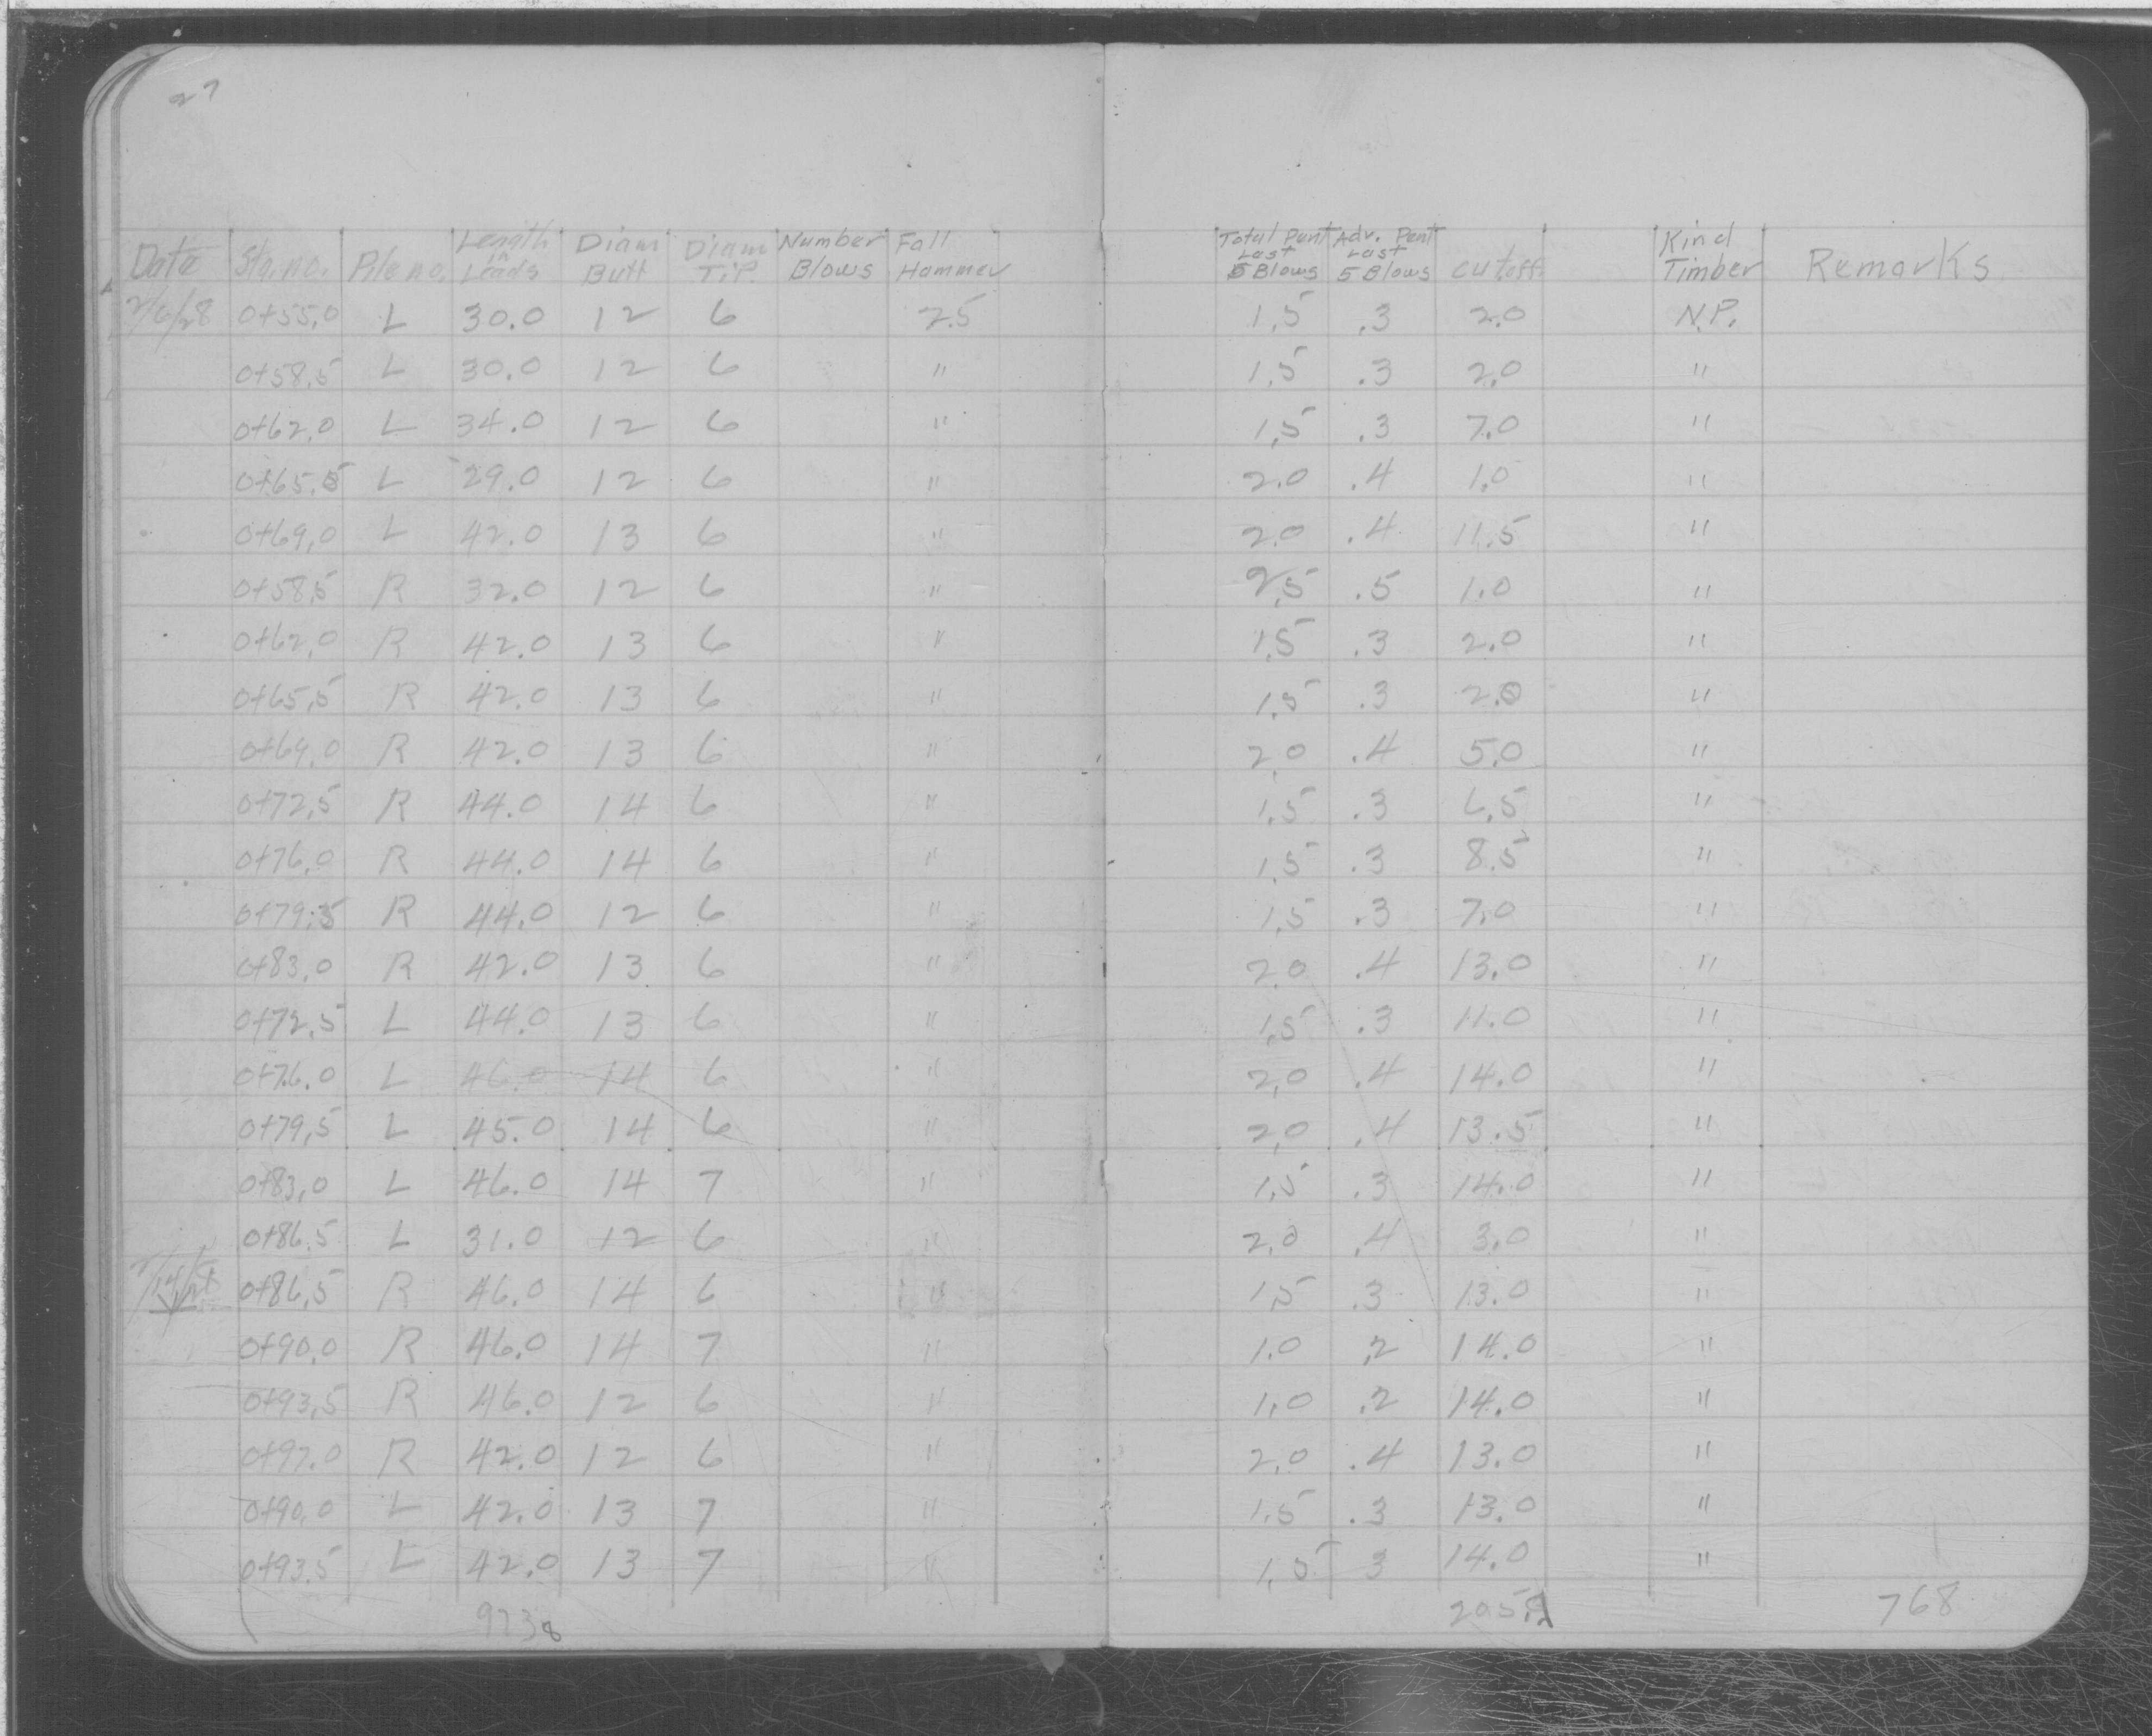 27
Date Sta. no. Pile no. Length in Leads Diam Butt Diam Tip. Number Blows Fall Hammer Total Pent Last 5 Blows Adv. Pent Last 5 Blows cutoff Kind Timber Remarks
0+55.0 L 30.0 12 6 25 1.5 .3 2.0 N.P.
0+58.5 L 30.0 12 6 " 1.5 .3 2.0 "
0+62.0 L 34.0 12 6 " 1.5 .3 7.0 "
0+65.5 L 29.0 12 6 " 2.0 .4 1.0 "
0+69.0 L 42.0 13 6 " 2.0 .4 11.5 "
0+58.5 R 32.0 12 6 " 2.5 .5 1.0 "
0+62.0 R 42.0 13 6 " 1.5 .3 2.0 "
0+65.5 R 42.0 13 6 " 1.5 .3 2.0 "
0+69.0 R 42.0 13 6 " 2.0 .4 5.0 "
0+72.5 R 44.0 14 6 " 1.5 .3 6.5 "
0+76.0 R 44.0 14 6 " 1.5 .3 8.5 "
0+79.5 R 44.0 12 6 " 1.5 .3 7.0 "
0+83.0 R 42.0 13 6 " 2.0 .4 13.0 "
0+72.5 L 44.0 13 6 " 1.5 .3 11.0 "
0+76.0 L 46.0 14 6 " 2.0 .4 14.0 "
0+79.5 L 45.0 14 6 " 2.0 .4 13.5 "
0+83.0 L 46.0 14 7 " 1.5 .3 14.0 "
0+86.5 L 31.0 12 6 " 2.0 .4 3.0 "
0+86.5 R 46.0 14 6 " 1.5 .3 13.0 "
0+90.0 R 46.0 14 7 " 1.0 .2 14.0 "
0+93.5 R 46.0 12 6 " 1.0 .2 14.0 "
0+97.0 R 42.0 12 6 " 2.0 .4 13.0 "
0+90.0 L 42.0 13 7 " 1.5 .3 13.0 "
0+93.5 L 42.0 13 7 " 1.5 3 14.0 "
768